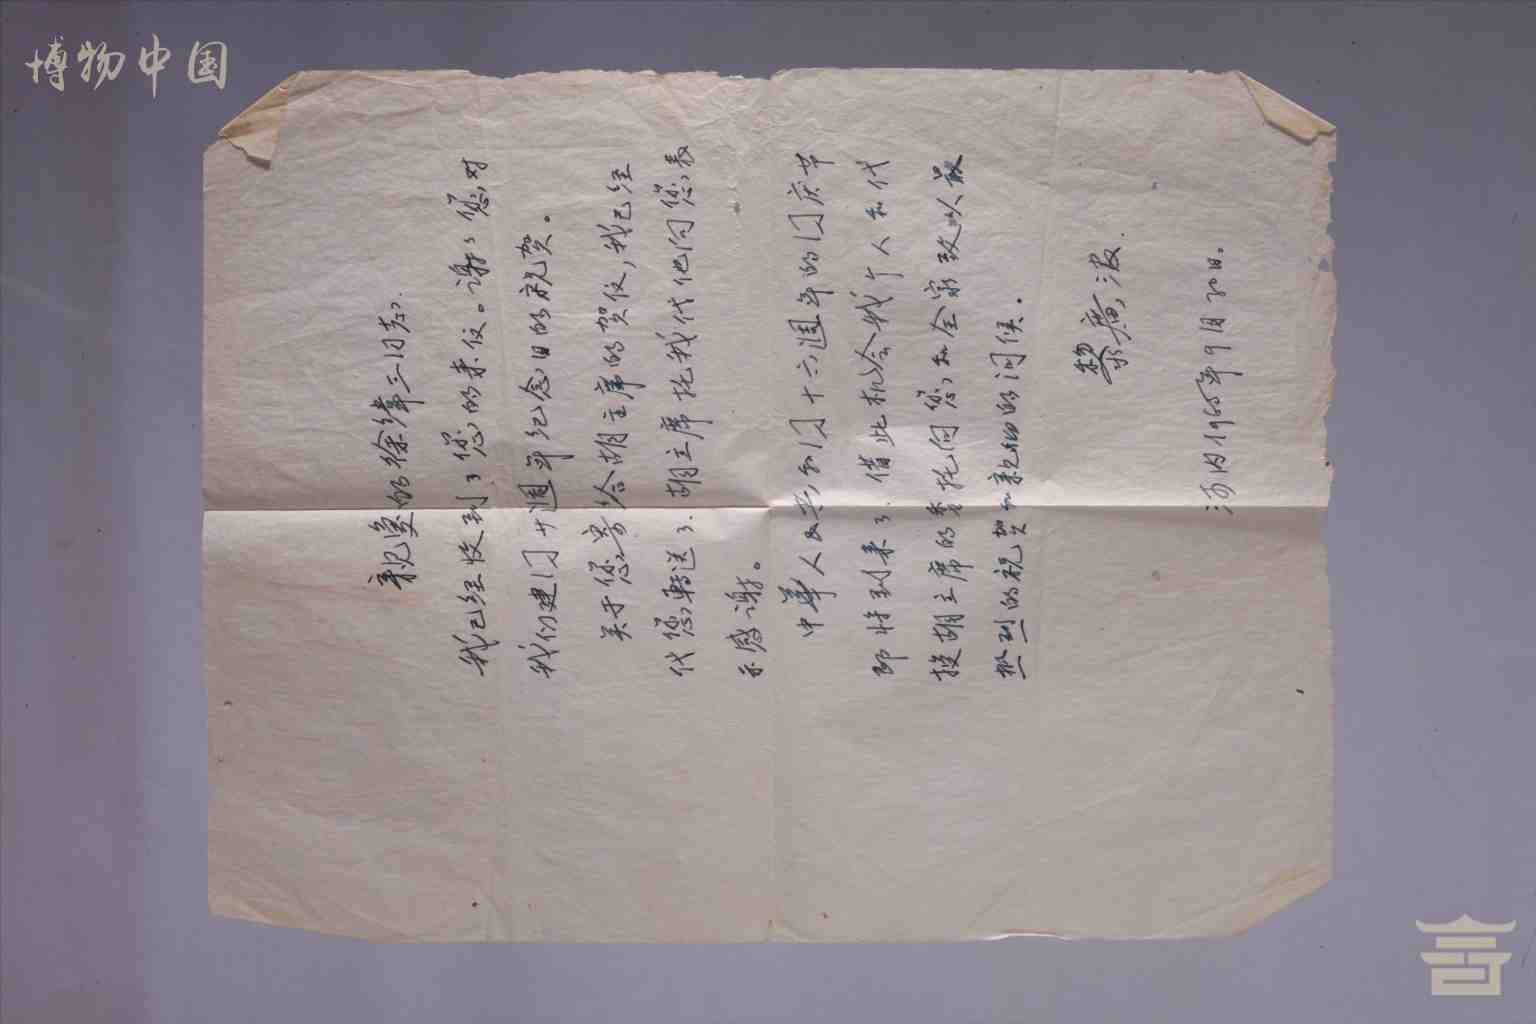 博物中国
親爱的徐偉三同志：
我已经收到了您的来仪。谢谢您对
我们建国十週年纪念日的祝贺。
关于您寄给胡主席的贺仪，我已经
代您转送了。胡主席托我代他向您表
示感谢。
中華人民共和国十六週年的国庆节
即将到来了。借此机会我个人和代
接胡主席的委托向您和全家致以最
热烈的祝贺和亲切的问候。
黎廣波．
河内1965年9月20日。